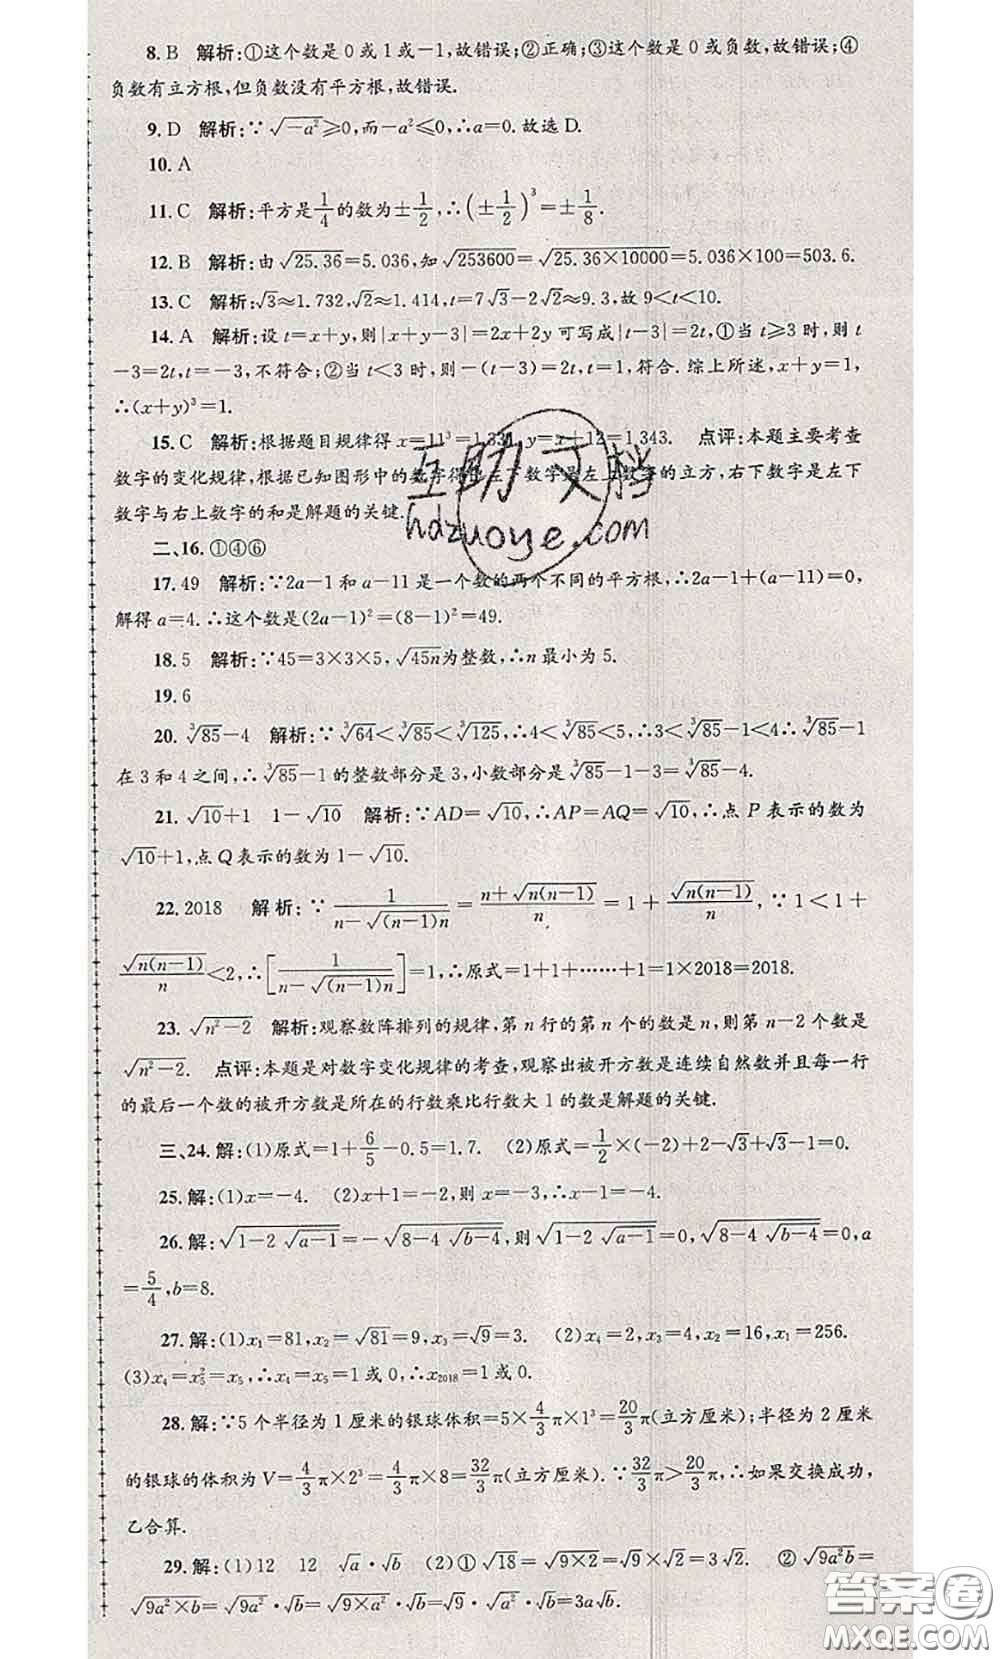 8. B 解析:①这个数是0或1或-1,故错误;②正确;③这个数是0或负数,故错误;④
负数有立方根,但负数没有平方根,故错误.
9. D 解析:∵√(-a²)≥0,而-a²≤0,∴a=0.故选D.
10. A
11. C 解析:平方是1/4的数为±1/2,∴(±1/2)³=±1/8.
12. B 解析:由√25.36=5.036,知√253600=√(25.36×10000)=5.036×100=503.6.
13. C 解析:√3≈1.732,√2≈1.414,t=7√3-2√2≈9.3,故9<t<10.
14. A 解析:设t=x+y,则|x+y-3|=2x+2y可写成|t-3|=2t,①当t≥3时,则t
-3=2t,t=-3,不符合;②当t<3时,则-(t-3)=2t,t=1,符合.综上所述,x+y=1,
∴(x+y)³=1.
15. C 解析:根据题目规律得x=11³=1,331,y=x+12=1,343. 点评:本题主要考查
数字的变化规律,根据已知图形中的数字得出左下数字是左上数字的立方,右下数字是左下
数字与右上数字的和是解题的关键.
互助文档
hdzuoye.com
二、16. ①④⑥
17. 49 解析:∵2a-1和a-11是一个数的两个不同的平方根,∴2a-1+(a-11)=0,
解得a=4.∴这个数是(2a-1)²=(8-1)²=49.
18. 5 解析:∵45=3×3×5,√45n为整数,∴n最小为5.
19. 6
20. ³√85-4 解析:∵³√64<³√85<³√125,∴4<³√85<5,∴3<³√85-1<4∴³√85-1
在3和4之间,∴³√85-1的整数部分是3,小数部分是³√85-1-3=³√85-4.
21. √10+1 1-√10 解析:∵AD=√10,∴AP=AQ=√10,∴点P表示的数为
√10+1,点Q表示的数为1-√10.
22. 2018 解析:∵1/(n-√((n-1)n))=(n+√(n(n-1)))/n=1+√(n(n-1))/n,∵1<1+
√(n(n-1))/n<2,∴[1/(n-√((n-1)n))]=1,∴原式=1+1+……+1=1×2018=2018.
23. √(n²-2) 解析:观察数阵排列的规律,第n行的第n个的数是n,则第n-2个数是
√(n²-2). 点评:本题是对数字变化规律的考查,观察出被开方数是连续自然数并且每一行
的最后一个数的被开方数是所在的行数乘比行数大1的数是解题的关键.
三、24. 解:(1)原式=1+6/5-0.5=1.7. (2)原式=1/2×(-2)+2-√3+√3-1=0.
25. 解:(1)x=-4. (2)x+1=-2,则x=-3,∴x-1=-4.
26. 解:√(1-2√(a-1))=-√(8-4√(b-4)),则√(1-2√(a-1))=0,√(8-4√(b-4))=0,a
=5/4,b=8.
27. 解:(1)x₁=81,x₂=√81=9,x₃=√9=3. (2)x₄=2,x₃=4,x₂=16,x₁=256.
(3)x₄=x₅²=x₅,∴x₄=x₅=1或0,∴x₂₀₁₈=1或0.
28. 解:∵5个半径为1厘米的银球体积=5×4/3π×1³=20/3π(立方厘米);半径为2厘米
的银球的体积为V=4/3π×2³=4/3π×8=32/3π(立方厘米).∵32/3π>20/3π,∴如果交换成功,
乙合算.
29. 解:(1)12 12 √a·√b (2)①√18=√(9×2)=√9×√2=3√2. ②√(9a²b)=
√(9a²×b)=√(9a²)·√b=√(9×a²)·√b=√9·√(a²)·√b=3a√b.
答案圈
MXQE.COM